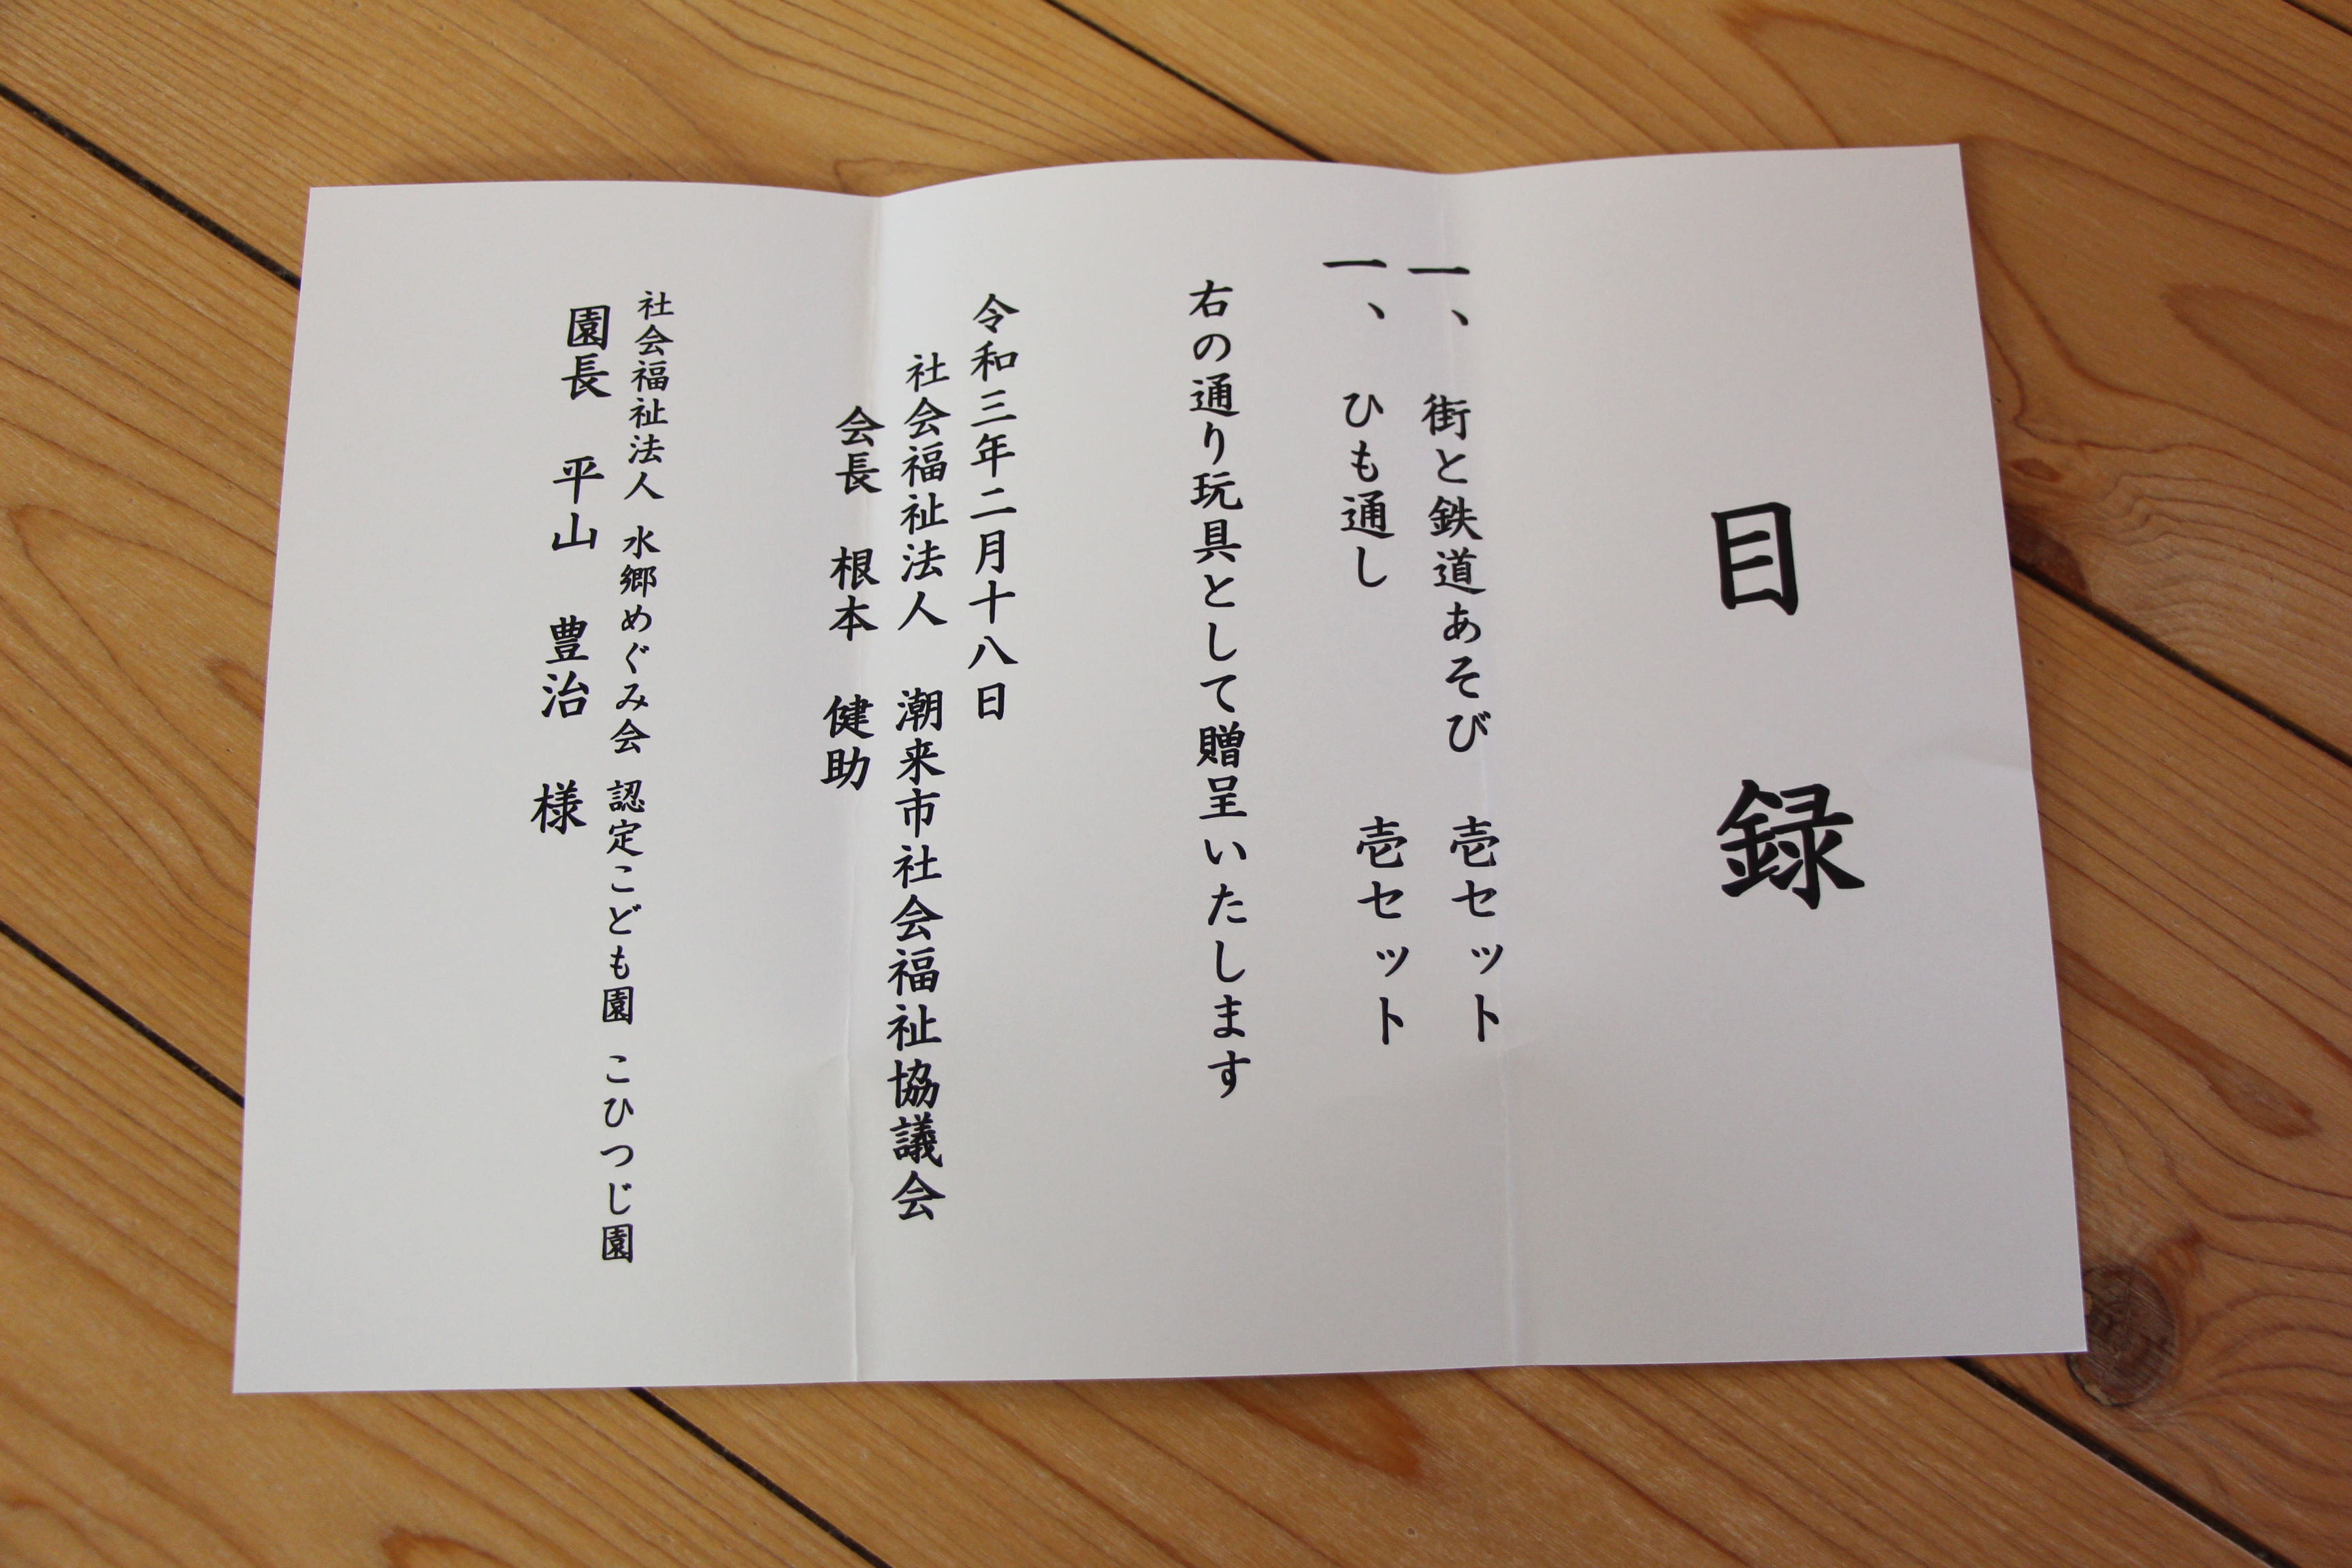 目録
一、街と鉄道あそび 壱セット
一、ひも通し 壱セット
右の通り玩具として贈呈いたします
令和三年二月十八日
社会福祉法人 潮来市社会福祉協議会
会長 根本 健助
社会福祉法人 水郷めぐみ会 認定こども園 こひつじ園
園長 平山 豊治 様